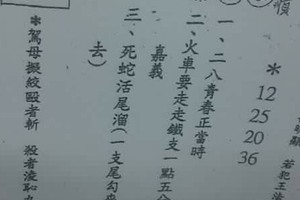 ＊ 12 25 20 36
一、二八青春正當時
二、火車要走走鐵支一點五分
嘉義
三、死蛇活尾溜(一支尾勾
去)
＊駕母擬絞毆者斬 殺者凌
若犯王法